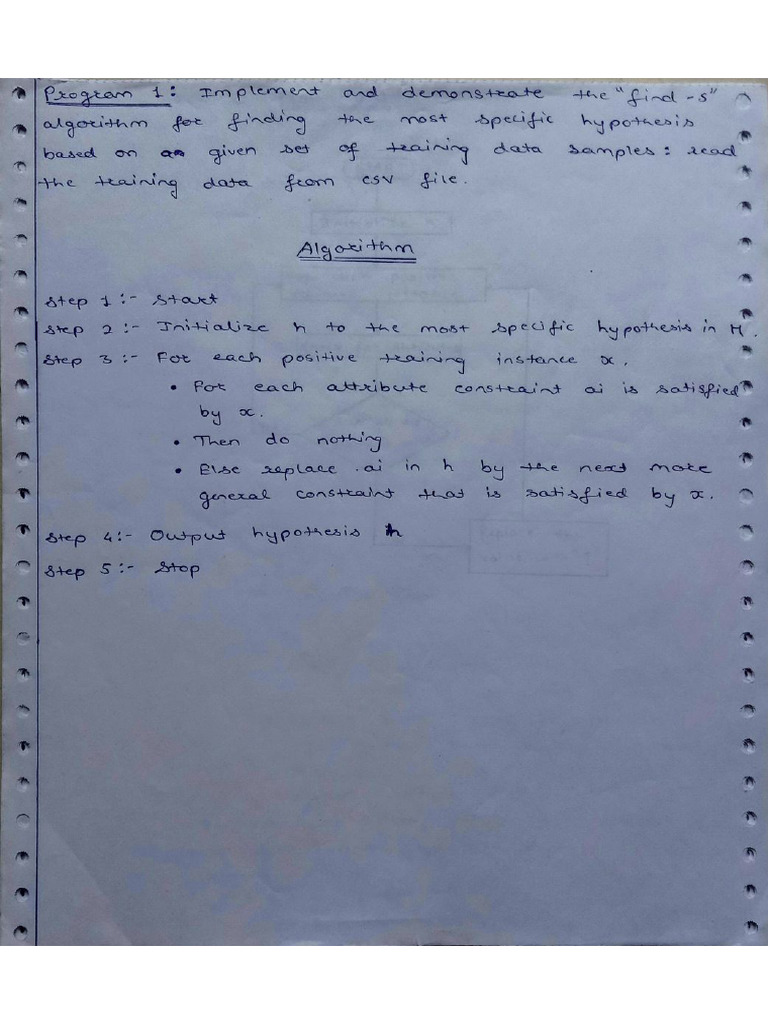 Program 1: Implement and demonstrate the "find-s"
algorithm for finding the most specific hypothesis
based on given set of training data samples: read
the training data from csv file.
Algorithm
Step 1:- Start
Step 2:- Initialize h to the most specific hypothesis in H.
Step 3:- For each positive training instance x.
• For each attribute constraint ai is satisfied
by x.
• Then do nothing
• Else replace ai in h by the next more
general constraint that is satisfied by x.
Step 4:- Output hypothesis h
Step 5:- Stop